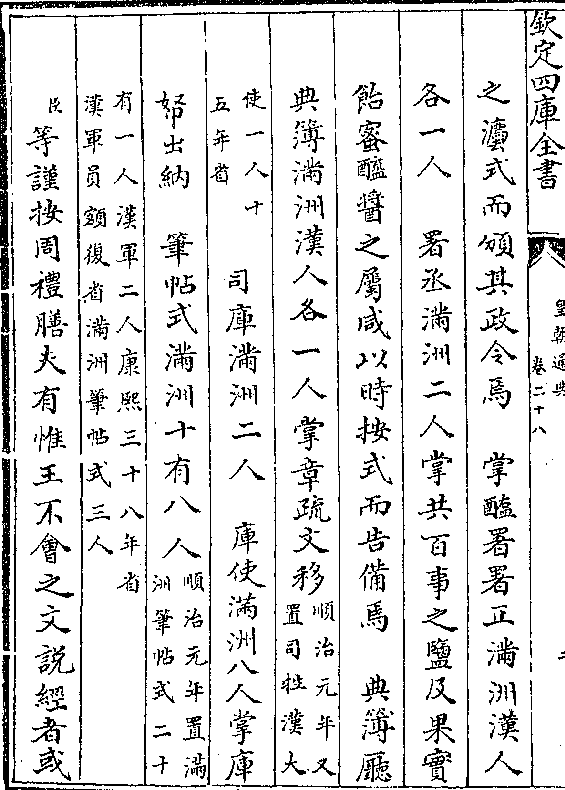 欽定四庫全書
皇朝通典
卷二十八
之灋式而頒其政令焉　掌醢署署正滿洲漢人
各一人　署丞滿洲二人掌共百事之鹽及果實
飴蜜醯醬之屬咸以時按式而告備焉　典簿廳
典簿滿洲漢人各一人掌章疏文移
順治元年又
置司牲漢大
使一人十
五年省
司庫滿洲二人　庫使滿洲八人掌庫
帑出納　筆帖式滿洲十有八人
順治元年置滿
洲筆帖式二十
有一人漢軍二人康熙三十八年省
漢軍員額復省滿洲筆帖式三人
臣等謹按周禮膳夫有惟王不會之文說經者或